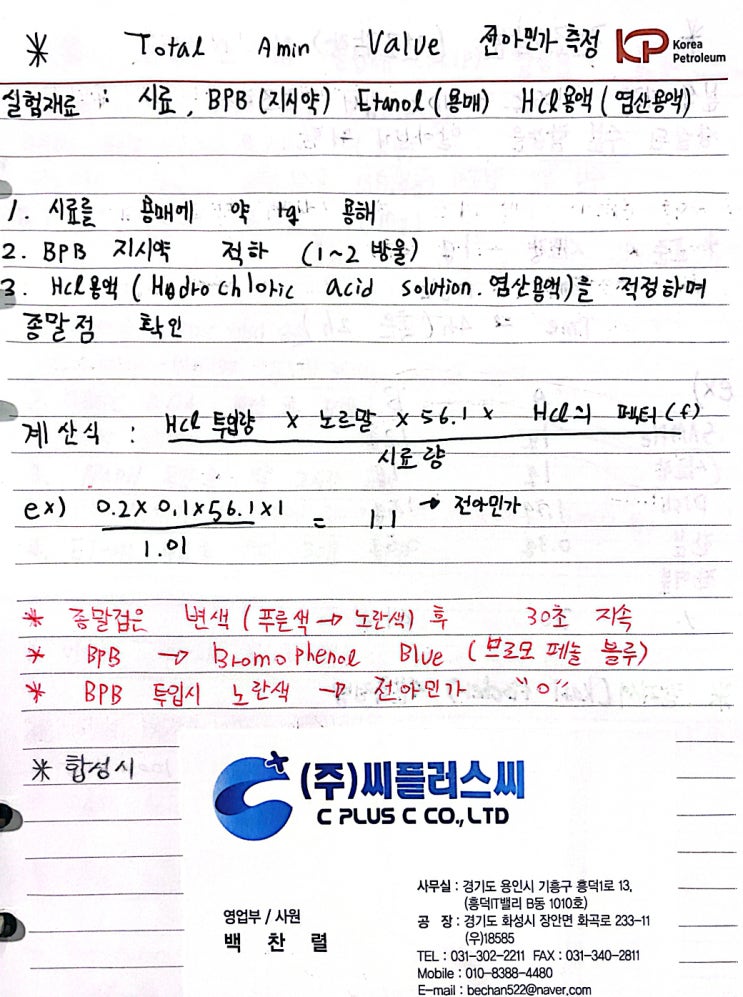 * Total Amin Value 전아민가 측정 KP Korea Petroleum
실험재료 : 시료, BPB (지시약) Etanol (용매) Hcl용액 (염산용액)
1. 시료를 용매에 약 1g 용해
2. BPB 지시약 적하 (1~2 방울)
3. Hcl용액 (Hydrochloric acid solution. 염산용액)을 적정하며
종말점 확인
계산식 : Hcl 투입량 × 노르말 × 56.1 × Hcl의 펙터(f)
시료량
ex) 0.2 × 0.1 × 56.1 × 1 = 1.1 → 전아민가
1.01
* 종말점은 변색 (푸른색 → 노란색) 후 30초 지속
* BPB → Bromophenol Blue (브로모 페놀 블루)
* BPB 투입시 노란색 → 전아민가 "0"
* 합성시
(주)씨플러스씨
C PLUS C CO., LTD
사무실 : 경기도 용인시 기흥구 흥덕1로 13,
(흥덕IT밸리 B동 1010호)
영업부 / 사원
공 장 : 경기도 화성시 장안면 화곡로 233-11
백 찬 렬
(우)18585
TEL : 031-302-2211 FAX : 031-340-2811
Mobile : 010-8388-4480
E-mail : bechan522@naver.com